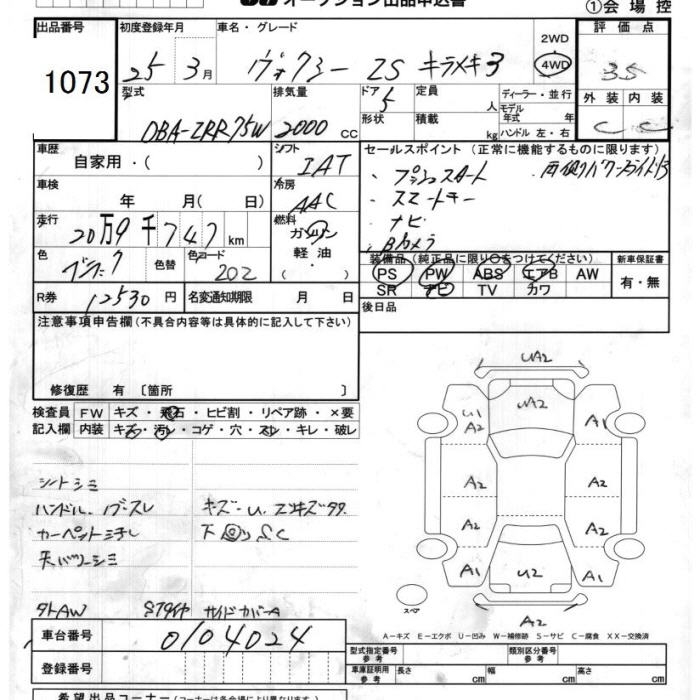 オークション出品申込書
①会場控
出品番号 初度登録年月 車名・グレード 2WD 評価点
1073 25 3月 ヴォクシー ZS キラメキ3 4WD 3.5
型式 排気量 ドア 5 定員 人 ディーラー・並行 外装 内装
DBA-ZRR75W 2000 CC 形状 積載 kg モデル年式 年 C C
ハンドル 左・右
車歴 自家用・( ) シフト IAT セールスポイント(正常に機能するものに限ります)
・プッシュスタート ・両側パワースライドドア
車検 年 月(日) 冷房 AAC ・スマートキー
・ナビ
走行 20万9千747km 燃料 ガソリン 軽油 ・( ) ・Bカメラ
色 色替 色コード 202 装備品(純正品に限り○をつけてください) 新車保証書
PS PW ABS エアB AW 有・無
R券 12530円 名変通知期限 月 日 SR ナビ TV カワ
後日品
注意事項申告欄(不具合内容等は具体的に記入して下さい)
修復歴 有〔箇所 〕
検査員 FW キズ・飛石・ヒビ割・リペア跡・×要
記入欄 内装 キズ・汚レ・コゲ・穴・スレ・キレ・破レ
シートシミ
ハンドル、ノブスレ キズ-U、スリキズタタ
カーペット
天バリシミ
タトAW サイドカバーA
UA2
UA2
U1 A2 A1
A2 A2
A2 A2
A1 U2 A1
スペア
A2
A-キズ E-エクボ U-凹み W-補修跡 S-サビ C-腐食 XX-交換済
車台番号 0104024
型式指定番号 参考 類別区分番号 参考
登録番号 車庫証明用 参考 長さ cm 幅 cm 高さ cm
希望出品コーナー(コーナーは各会場により